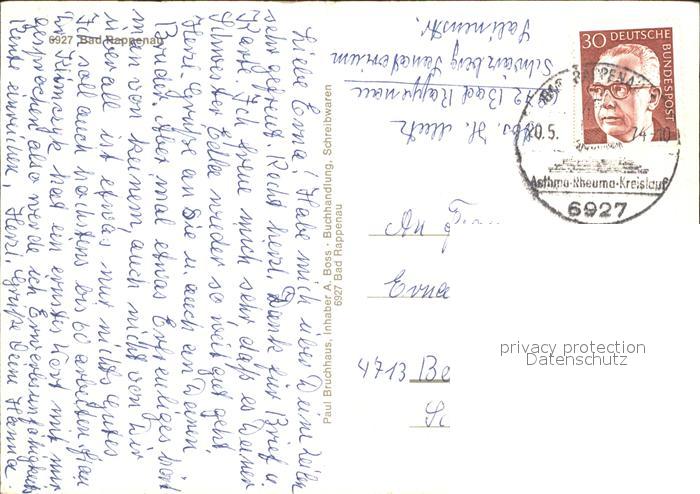 6927 Bad Rappenau
Liebe Erna! Habe mich über Deine Zeilen
sehr gefreut. Recht herzl. Dank für Brief u.
Karte. Ich freue mich sehr, daß es Deiner
Schwester Edla wieder so weit gut geht.
Herzl. Grüße an Sie u. auch an Deinen
Bruder. Aber mal etwas Erfreuliges hört
man von keinem, auch nicht von Dir
überall ist etwas nur nichts Gutes
Ich soll auch höchstens bis 60 arbeiten, Frau
hat ein ernstes Wort mit mir
gesprochen also werde ich Erwerbsunfähigkeits
Rente einreichen, Herzl. Grüße Deine Hanna
Paul Bruchhaus, Inhaber A. Boss · Buchhandlung, Schreibwaren
6927 Bad Rappenau
Abs. H.
Bad Rappenau
Schwärzberg Sanatorium
Salinenstr.
30 DEUTSCHE
BUNDESPOST
BAD RAPPENAU
20.5. 74-10
Asthma-Rheuma-Kreislauf
6927
An
Erna
4713 Bo
privacy protection
Datenschutz